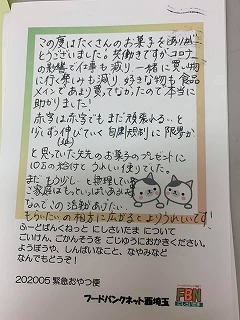 この度はたくさんのお菓子をありが
とうございました。共働きですがコロナ
の影響で仕事も減り一緒に買い物
に行く楽しみも減り好きな物も食品
メインであまり買えてなかったので本当に
助かりました！
赤字は赤字でもまだ頑張れる…と
少しずつ伸びていく自粛規制に限界が
と思っていた矢先のお菓子のプレゼントに
10万の給付でうれしい便りでした。
まだもう少し
ご家庭はもっといっぱいあ
なのでこの活動がた
もらいたい
広がるとよりうれしいです！
ふーどばんくねっと にしさいたま について
ごいけん、ごかんそうを ごじゆうにおかきください。
ようぼうや、しんぱいなこと、なやみなど
なんでもどうぞ！
202005 緊急おやつ便
フードバンクネット西埼玉
FBN